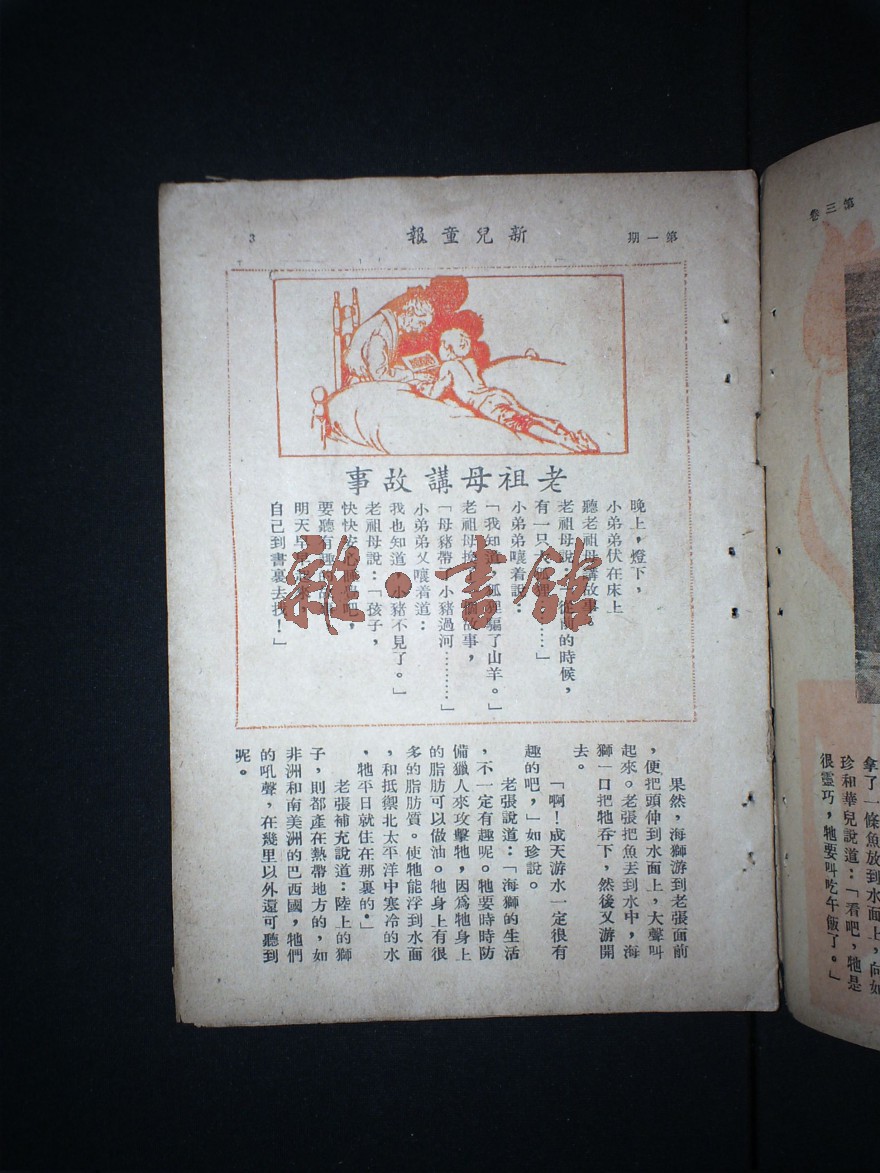 第一期
新兒童報
3
老祖母講故事
晚上，燈下，
小弟弟伏在床上
聽老祖母講故事。
老祖母說：「從前的時候，
有一只大狐狸……」
小弟弟嚷着說：
「我知道，狐狸騙了山羊。」
老祖母換了個故事，
「母豬帶了小豬過河…………」
小弟弟又嚷着道：
我也知道，小豬不見了。」
老祖母說：「孩子，
快快安心睡吧，
要聽有趣的故事，
明天早
自己到書裏去找！」
雜·書館
果然，海獅游到老張面前
，便把頭伸到水面上，大聲叫
起來。老張把魚丟到水中，海
獅一口把牠吞下，然後又游開
去。
「啊！成天游水一定很有
趣的吧，」如珍說。
老張說道：「海獅的生活
，不一定有趣呢。牠要時時防
備獵人來攻擊牠，因爲牠身上
的脂肪可以做油。牠身上有很
多的脂肪質。使牠能浮到水面
，和抵禦北太平洋中寒冷的水
，牠平日就住在那裏的。」
老張補充說道：陸上的獅
子，則都產在熱帶地方的，如
非洲和南美洲的巴西國，牠們
的吼聲，在幾里以外還可聽到
呢。
第三卷
拿了一條魚放到水面上，向如
珍和華兒說道：「看吧，牠是
很靈巧，牠要叫吃午飯了。」